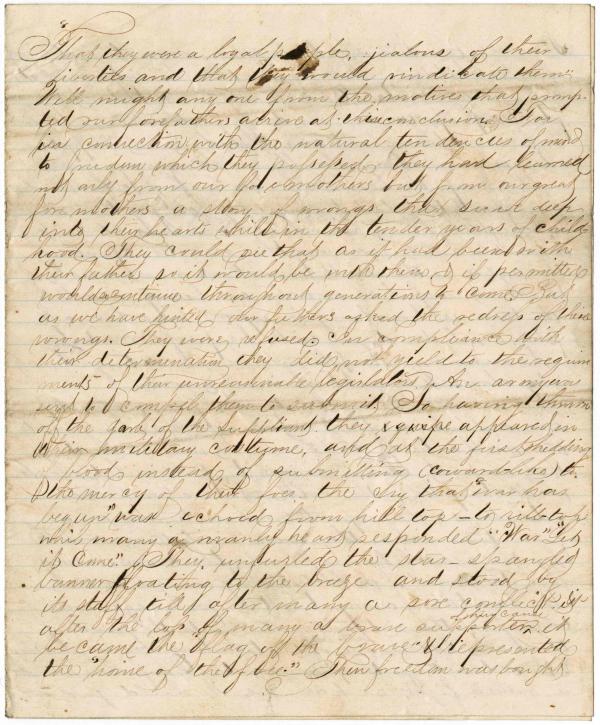 "That they were a loyal people, jealous of their
liberties and that they would vindicate them."
Well might any one from the motives that promp-
ted our forefathers arrive at this conclusion. For
in connection with the natural tendencies of mind
to freedom which they possessed, they had learned
not only from our foremothers but from our great
foremothers a story of wrongs that sunk deep
into their hearts while in the tender years of child-
hood. They could see that as it had been with
their fathers so it would be with them & if permitted
would continue throughout generations to come. But
as we have hinted our fathers asked the redress of these
wrongs. They were refused. In compliance with
their determination they did not yield to the requir
ments of their unreasonable legislators. An army was
sent to compell them to submit. So having thrown
off the garb of the suppliant they appeared in
their military costume, and at the first shedding
of blood instead of submitting (coward-like) to
the mercy of their foes the cry that "war has
begun" was echoed from hill top - to hill-top
while many a manly heart responded "War" "let
it come." They unfurled the star-spangled
banner floating to the breeze and stood by
its staff till after many a sore conflict &
after the loss of many a brave supporter it
became the "flag of the brave" & represented
the "home of the free." Then freedom was bought